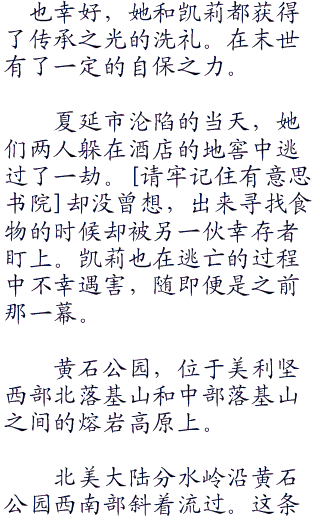 也幸好，她和凯莉都获得
了传承之光的洗礼。在末世
有了一定的自保之力。
夏延市沦陷的当天，她
们两人躲在酒店的地窖中逃
过了一劫。[请牢记住有意思
书院]却没曾想，出来寻找食
物的时候却被另一伙幸存者
盯上。凯莉也在逃亡的过程
中不幸遇害，随即便是之前
那一幕。
黄石公园，位于美利坚
西部北落基山和中部落基山
之间的熔岩高原上。
北美大陆分水岭沿黄石
公园西南部斜着流过。这条